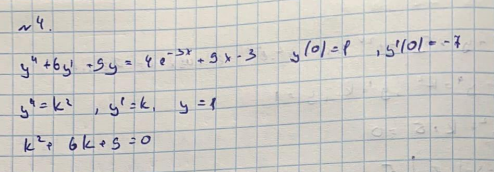 №4.
y'' + 6y' + 9y = 4e^{-3x} + 9x - 3 y(0) = 1 , y'(0) = -7
y'' = k² , y' = k, y = 1
k² + 6k + 9 = 0